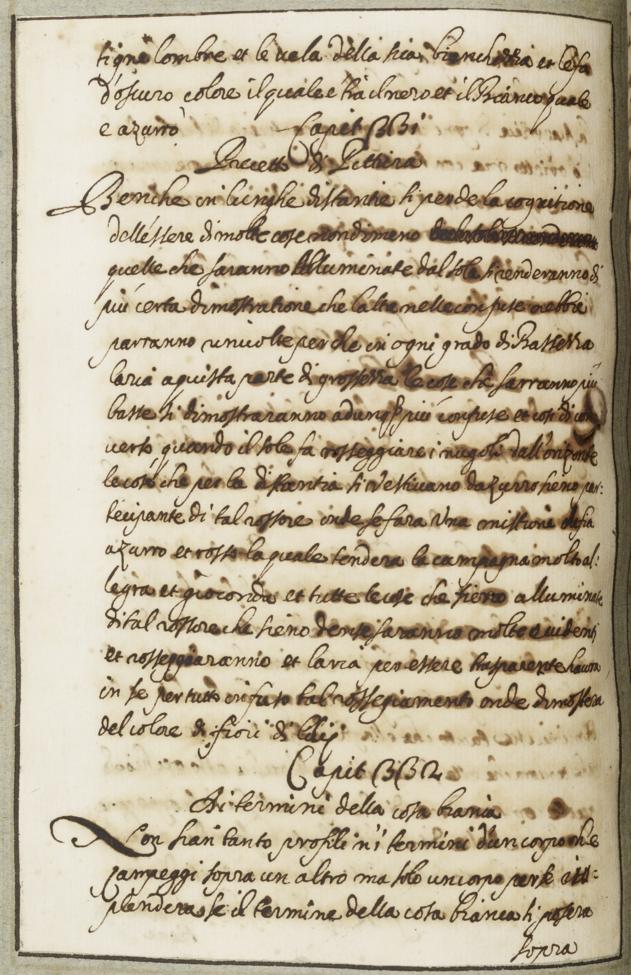 tigne lombre et le uela della sua bianchezza et le fa
d'oscuro colore il quale e tra il nero et il Bianco quale
e azurro
Capit 331
Precetti di Pittura
Benche in lunghe distantie si perde la cognitione
dell'essere di molte cose nondimeno
quelle che saranno Alluminate dal sole si renderanno di
piu certa dimostratione che laltre nelle confuse nebbie
parranno unuolte perche in ogni grado di Bassezza
laria aquista parte di grossezza le cose che sarranno piu
basse si dimostraranno adunq piu confuse et cosi di con
uerso quando il sole fa rosseggiare i nugoli dall'orizonte
le cose che per la distantia si uestiuano dazurro sieno par:
tecipante di tal rossore onde se fara una mistione
azurro et rosso la quale rendera la campagna molto al:
legra et gioconda et tutte le cose che sieno alluminate
di tal rossore che sieno dense saranno molto euidenti
et rosseggiaranno et laria per essere trasparente hauera
in se per tutto infuso tal rossegiamento onde dimostera
del colore di fiori di Gigli
Capit 332
Di termini della cosa biania
Non sian tanto profili n'i termini d'un corpo che
campeggi sopra un altro ma solo un corpo per se
plendera se il termine della cosa bianca si posera
sopra